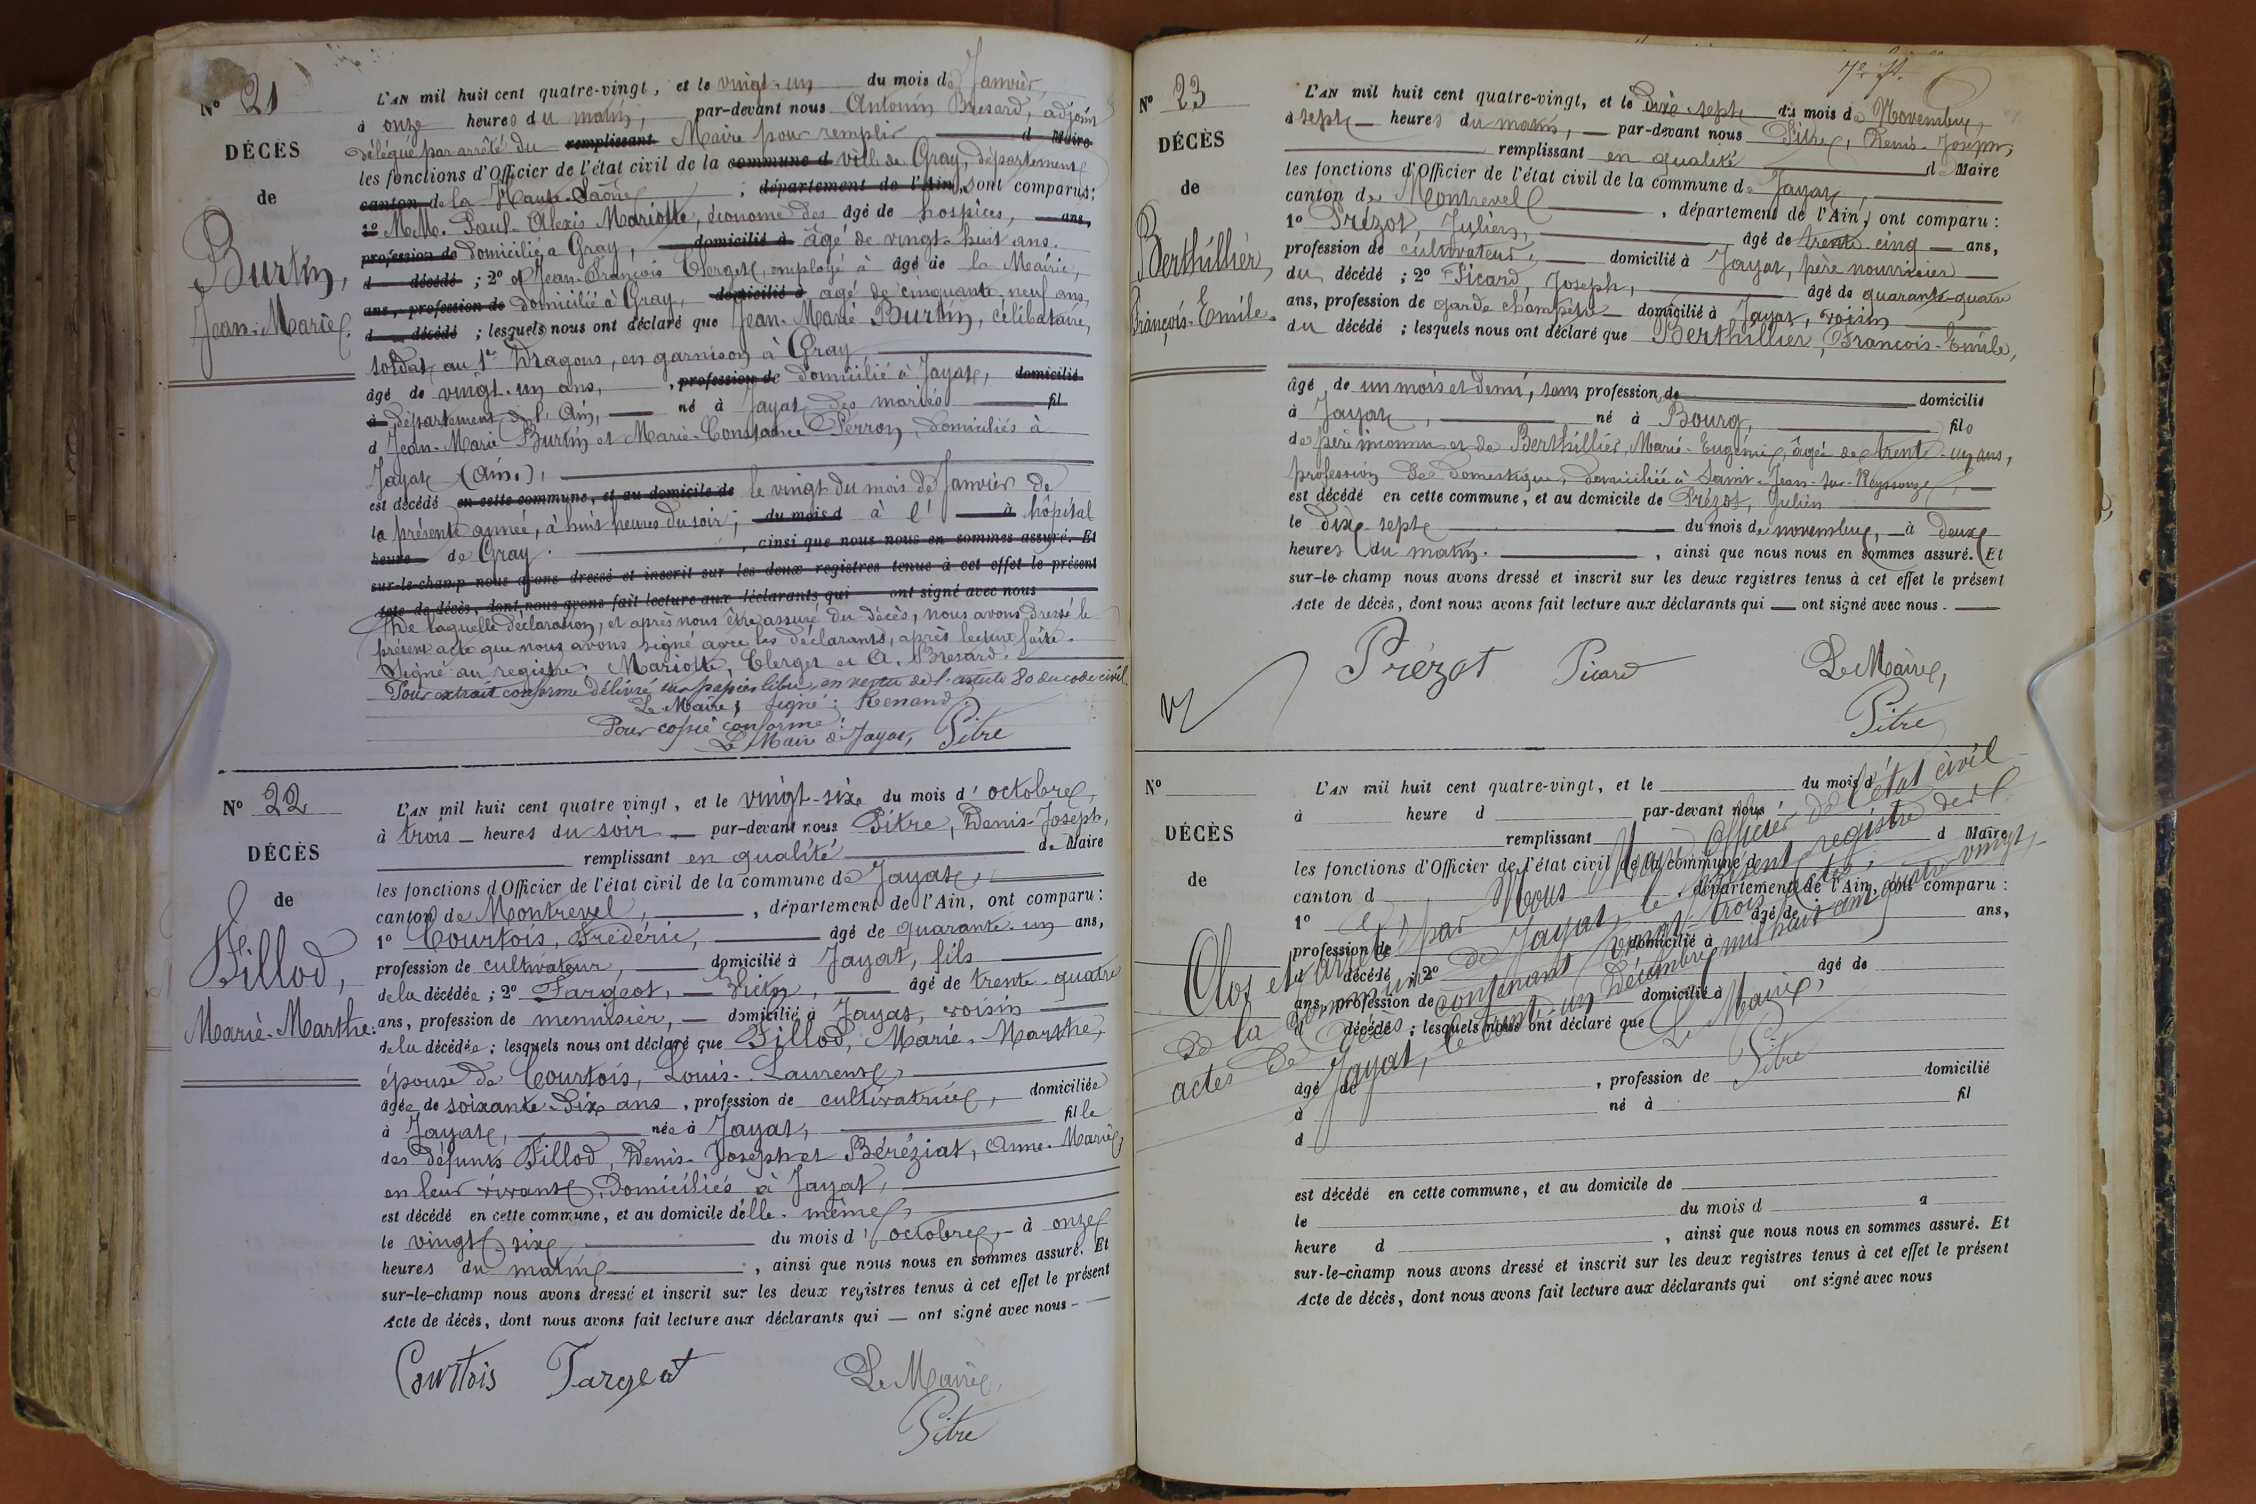 No 21
DÉCÈS
de
Burtin,
Jean-Marie.
L'AN mil huit cent quatre-vingt, et le vingt-un du mois de Janvier,
à onze heures du matin, par-devant nous Antonin Bresard, adjoint
délégué par arrêté du remplissant Maire pour remplir d Maire
les fonctions d'Officier de l'état civil de la commune d ville de Gray, département
canton de la Haute-Saône ; département de l'Ain, sont comparus:
1o MM. Paul-Alexis Mariotte, économe des âgé de hospices, ans,
profession de domicilié à Gray, domicilié à âgé de vingt-huit ans.
d décédé ; 2o et Jean-François Clerget, employé à âgé de la Mairie,
ans, profession de domicilié à Gray, domicilié à âgé de cinquante-neuf ans,
d décédé ; lesquels nous ont déclaré que Jean-Marie Burtin, célibataire,
soldat au 1er Dragons, en garnison à Gray,
âgé de vingt-un ans, , profession de domicilié à Jayat, domicilié
à département de l'Ain, né à Jayat des mariés fil
d Jean-Marie Burtin et Marie-Constance Perron, domiciliés à
Jayat (Ain.),
est décédé en cette commune, et au domicile de le vingt du mois de Janvier de
la présente année, à huit heures du soir, du mois d à l' à hôpital
heure de Gray. , ainsi que nous nous en sommes assuré. Et
sur-le-champ nous avons dressé et inscrit sur les deux registres tenus à cet effet le présent
acte de décès, dont nous avons fait lecture aux déclarants qui ont signé avec nous
De laquelle déclaration, et après nous être assuré du décès, nous avons dressé le
présent acte que nous avons signé avec les déclarants, après lecture faite.
Signé au registre: Mariotte, Clerget et A. Bresard.
Pour extrait conforme délivré sur papier libre, en vertu de l'article 80 du code civil.
Le Maire, signé: Renand
Pour copie conforme:
Le Maire de Jayat, Pitre
No 22
DÉCÈS
de
Fillod,
Marie-Marthe.
L'AN mil huit cent quatre vingt, et le vingt-six du mois d'octobre,
à trois heures du soir par-devant nous Pitre, Denis-Joseph,
remplissant en qualité de Maire
les fonctions d'Officier de l'état civil de la commune de Jayat,
canton de Montrevel, , département de l'Ain, ont comparu:
1o Courtois, Frédéric, âgé de quarante-un ans,
profession de cultivateur, domicilié à Jayat, fils
de la décédée ; 2o Fargeot, Victor, âgé de trente-quatre
ans, profession de menuisier, domicilié à Jayat, voisin
de la décédée ; lesquels nous ont déclaré que Fillod, Marie-Marthe,
épouse de Courtois, Louis-Laurent,
âgée de soixante-dix ans , profession de cultivatrice, domiciliée
à Jayat, née à Jayat, fille
des défunts Fillod, Denis-Joseph et Béréziat, Anne-Marie,
en leur vivant domiciliés à Jayat,
est décédé en cette commune, et au domicile d'elle-même,
le vingt-six du mois d'octobre, à onze
heures du matin , ainsi que nous nous en sommes assuré. Et
sur-le-champ nous avons dressé et inscrit sur les deux registres tenus à cet effet le présent
Acte de décès, dont nous avons fait lecture aux déclarants qui ont signé avec nous
Courtois Fargeot Le Maire,
Pitre
7e f.
No 23
DÉCÈS
de
Berthillier,
François-Emile.
L'AN mil huit cent quatre-vingt, et le dix-sept du mois de Novembre,
à sept heures du matin, par-devant nous Pitre, Denis-Joseph,
remplissant en qualité de Maire
les fonctions d'Officier de l'état civil de la commune de Jayat,
canton de Montrevel , département de l'Ain, ont comparu:
1o Prézot, Julien, âgé de trente-cinq ans,
profession de cultivateur, domicilié à Jayat, père nourricier
du décédé ; 2o Picard, Joseph, âgé de quarante-quatre
ans, profession de garde champêtre domicilié à Jayat, voisin
du décédé ; lesquels nous ont déclaré que Berthillier, François-Emile,
âgé de un mois et demi, sans profession de domicilié
à Jayat, né à Bourg, fils
de père inconnu et de Berthillier, Marie-Eugénie, âgée de trente-un ans,
profession de domestique, domiciliée à Saint-Jean-sur-Reyssouze,
est décédé en cette commune, et au domicile de Prézot, Julien
le dix-sept du mois de novembre, à deux
heures du matin. , ainsi que nous nous en sommes assuré. Et
sur-le-champ nous avons dressé et inscrit sur les deux registres tenus à cet effet le présent
Acte de décès, dont nous avons fait lecture aux déclarants qui ont signé avec nous.
Prézot Picard Le Maire,
Pitre
No
DÉCÈS
de
L'AN mil huit cent quatre-vingt, et le du mois d
à heure d par-devant nous
remplissant d Maire
les fonctions d'Officier de l'état civil de la commune d
canton d , département de l'Ain, ont comparu:
1o âgé de ans,
profession de domicilié à
d décédé ; 2o âgé de
ans, profession de domicilié à
d décédé ; lesquels nous ont déclaré que
âgé de , profession de domicilié
à né à fil
d
est décédé en cette commune, et au domicile de
le du mois d à
heure d , ainsi que nous nous en sommes assuré. Et
sur-le-champ nous avons dressé et inscrit sur les deux registres tenus à cet effet le présent
Acte de décès, dont nous avons fait lecture aux déclarants qui ont signé avec nous
Clos et arrêté par Nous Maire Officier de l'état civil
de la commune de Jayat, le présent registre des
actes de décès contenant vingt-trois actes,
Jayat, le trente-un Décembre mil huit cent quatre vingt,
Le Maire,
Pitre